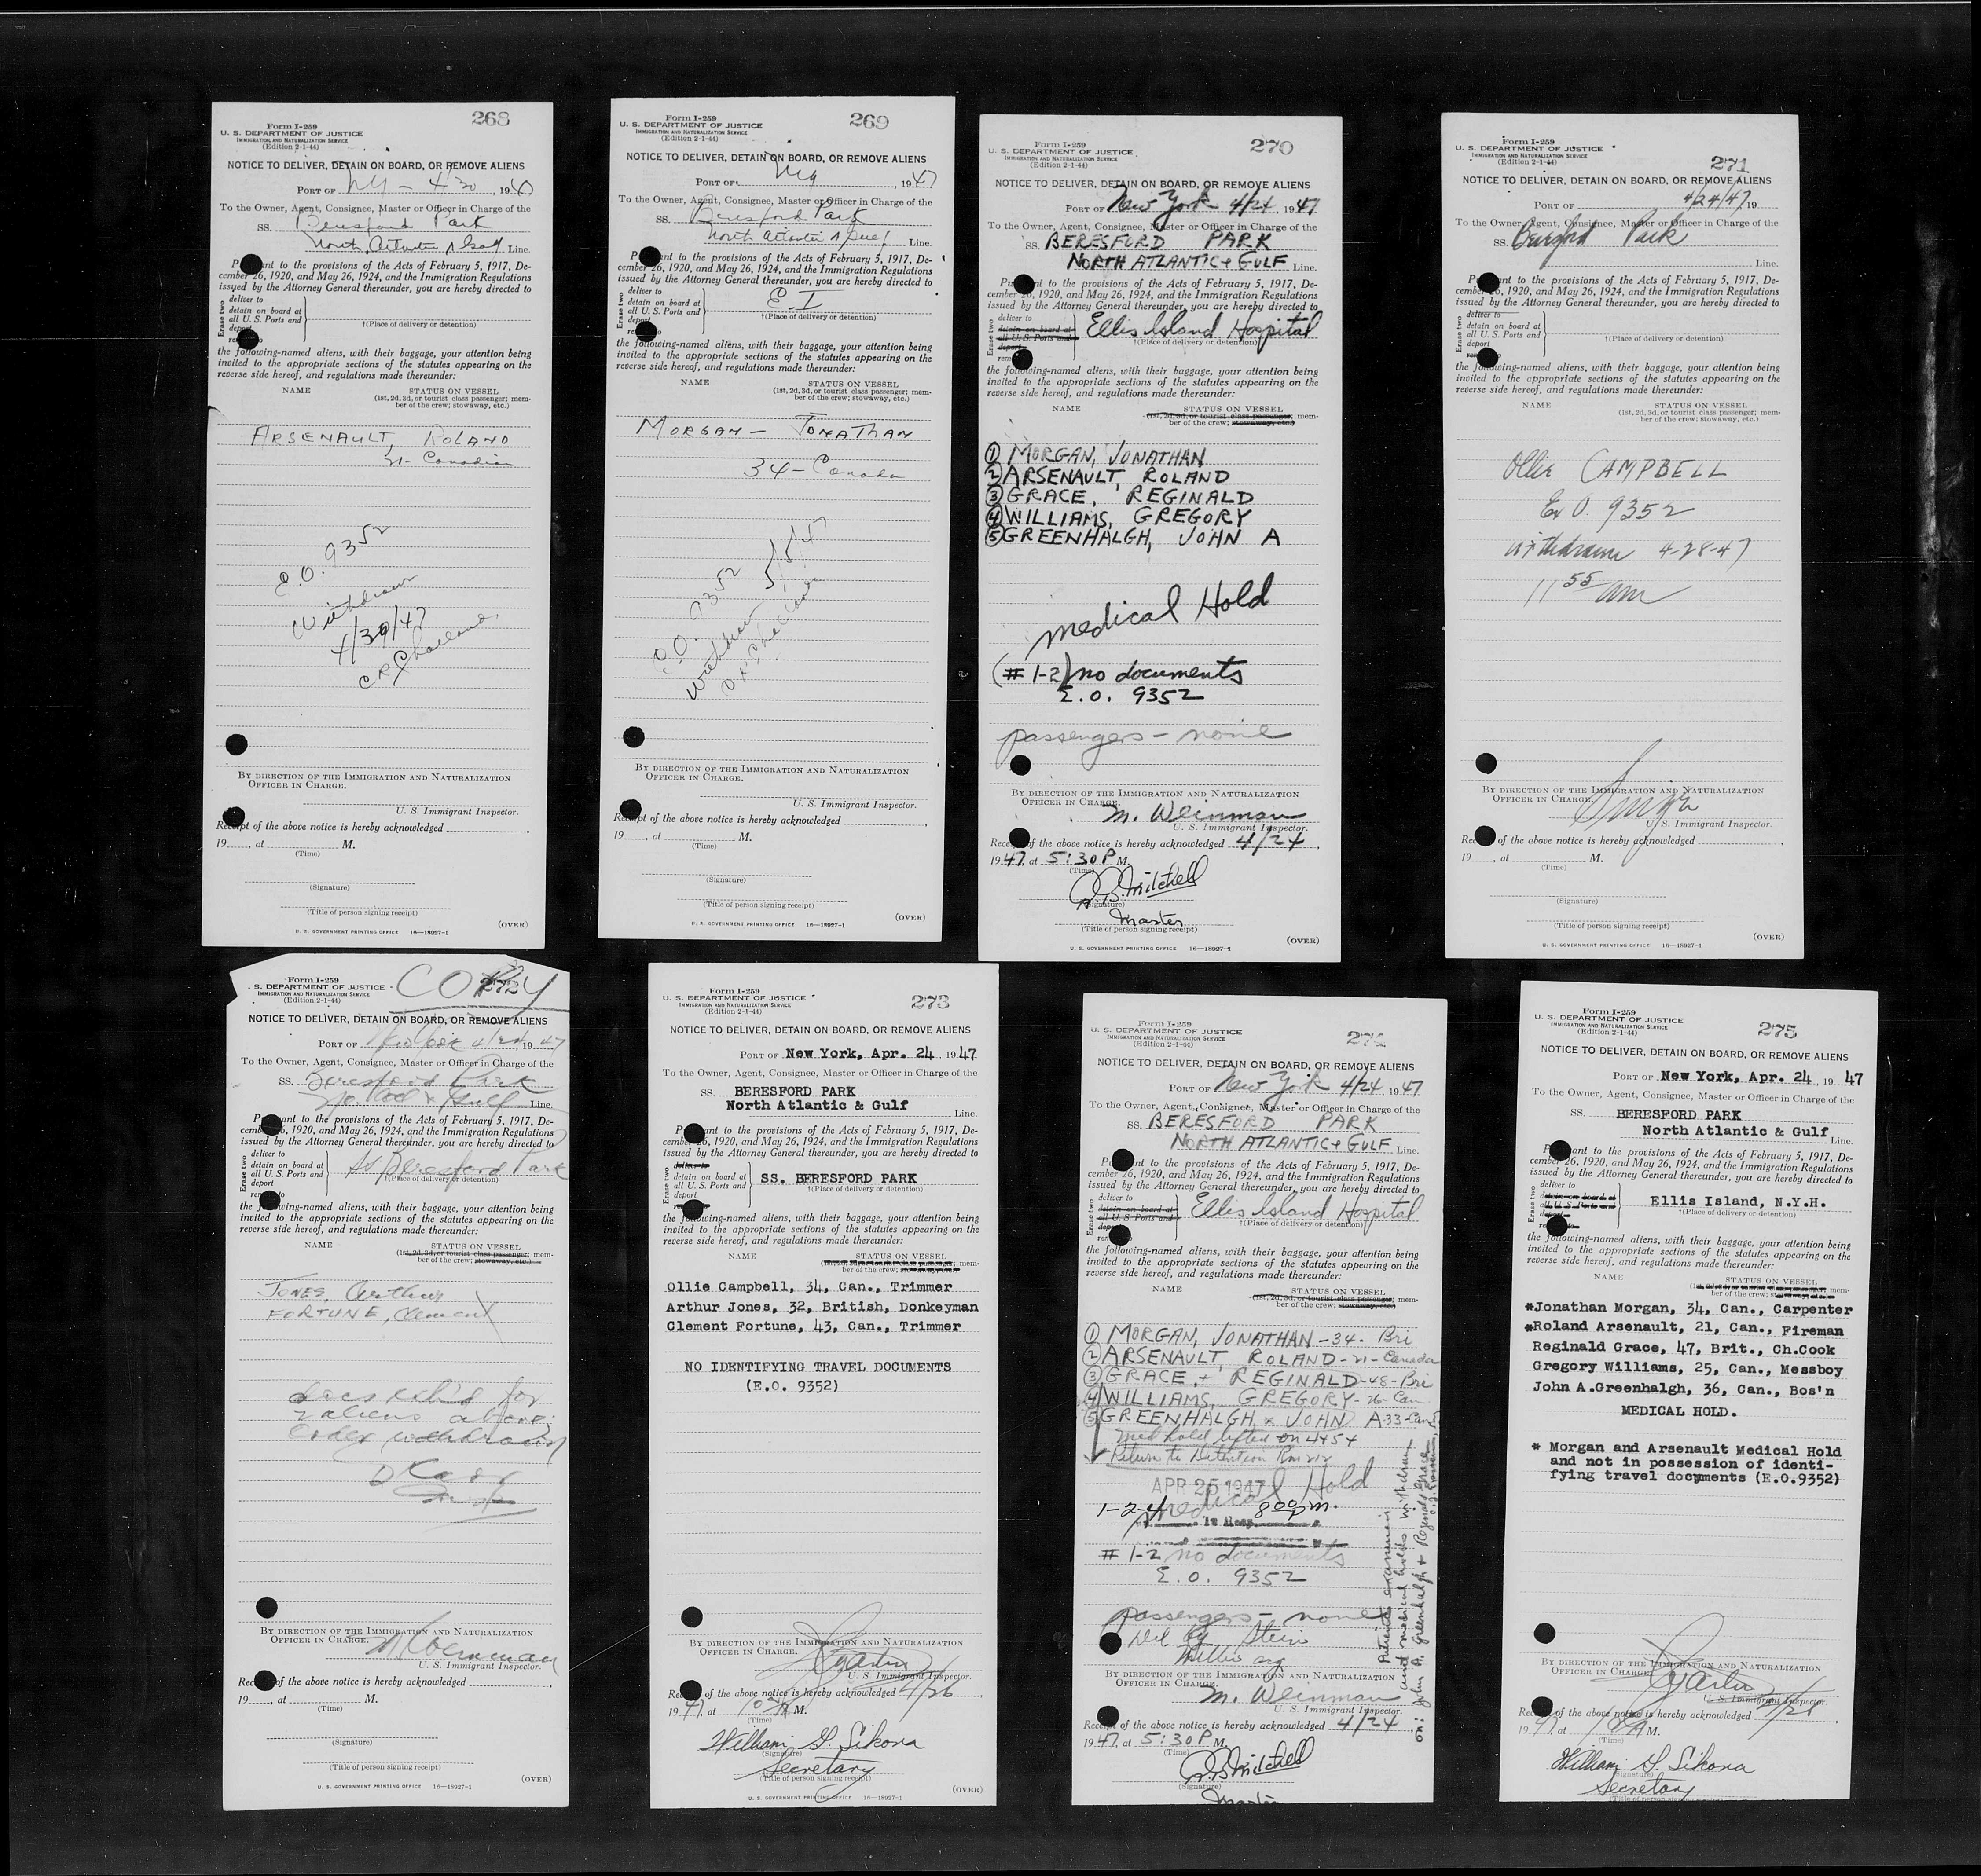 268
Form I-259
U. S. DEPARTMENT OF JUSTICE
IMMIGRATION AND NATURALIZATION SERVICE
(Edition 2-1-44)
NOTICE TO DELIVER, DETAIN ON BOARD, OR REMOVE ALIENS
PORT OF NY - 4/30, 1947
To the Owner, Agent, Consignee, Master or Officer in Charge of the
SS. Beresford Park
North Atlantic & Gulf Line.
Pursuant to the provisions of the Acts of February 5, 1917, De-
cember 26, 1920, and May 26, 1924, and the Immigration Regulations
issued by the Attorney General thereunder, you are hereby directed to
Erase two
deliver to
detain on board at
all U. S. Ports and
deport
remove to
†(Place of delivery or detention)
the following-named aliens, with their baggage, your attention being
invited to the appropriate sections of the statutes appearing on the
reverse side hereof, and regulations made thereunder:
NAME STATUS ON VESSEL
(1st, 2d, 3d, or tourist class passenger; mem-
ber of the crew; stowaway, etc.)
ARSENAULT, ROLAND
21- Canadian
E.O. 9352
Withdrawn
4/30/47
BY DIRECTION OF THE IMMIGRATION AND NATURALIZATION
OFFICER IN CHARGE.
U. S. Immigrant Inspector.
Receipt of the above notice is hereby acknowledged
19, at M.
(Time)
(Signature)
(Title of person signing receipt)
(OVER)
U. S. GOVERNMENT PRINTING OFFICE 16—18927-1
269
Form I-259
U. S. DEPARTMENT OF JUSTICE
IMMIGRATION AND NATURALIZATION SERVICE
(Edition 2-1-44)
NOTICE TO DELIVER, DETAIN ON BOARD, OR REMOVE ALIENS
PORT OF NY, 1947
To the Owner, Agent, Consignee, Master or Officer in Charge of the
SS. Beresford Park
North Atlantic & Gulf Line.
Pursuant to the provisions of the Acts of February 5, 1917, De-
cember 26, 1920, and May 26, 1924, and the Immigration Regulations
issued by the Attorney General thereunder, you are hereby directed to
Erase two
deliver to
detain on board at
all U. S. Ports and
deport
remove to
E I
†(Place of delivery or detention)
the following-named aliens, with their baggage, your attention being
invited to the appropriate sections of the statutes appearing on the
reverse side hereof, and regulations made thereunder:
NAME STATUS ON VESSEL
(1st, 2d, 3d, or tourist class passenger; mem-
ber of the crew; stowaway, etc.)
MORGAN — JONATHAN
34 - Canada
E.O. 9352
Withdrawn
BY DIRECTION OF THE IMMIGRATION AND NATURALIZATION
OFFICER IN CHARGE.
U. S. Immigrant Inspector.
Receipt of the above notice is hereby acknowledged
19, at M.
(Time)
(Signature)
(Title of person signing receipt)
(OVER)
U. S. GOVERNMENT PRINTING OFFICE 16—18927-1
270
Form I-259
U. S. DEPARTMENT OF JUSTICE
IMMIGRATION AND NATURALIZATION SERVICE
(Edition 2-1-44)
NOTICE TO DELIVER, DETAIN ON BOARD, OR REMOVE ALIENS
PORT OF New York 4/24 1947
To the Owner, Agent, Consignee, Master or Officer in Charge of the
SS. BERESFORD PARK
NORTH ATLANTIC & GULF Line.
Pursuant to the provisions of the Acts of February 5, 1917, De-
cember 26, 1920, and May 26, 1924, and the Immigration Regulations
issued by the Attorney General thereunder, you are hereby directed to
Erase two
deliver to
detain on board at
all U. S. Ports and
deport
remove to
Ellis Island Hospital
†(Place of delivery or detention)
the following-named aliens, with their baggage, your attention being
invited to the appropriate sections of the statutes appearing on the
reverse side hereof, and regulations made thereunder:
NAME STATUS ON VESSEL
(1st, 2d, 3d, or tourist class passenger; mem-
ber of the crew; stowaway, etc.)
① MORGAN, JONATHAN
② ARSENAULT, ROLAND
③ GRACE, REGINALD
④ WILLIAMS, GREGORY
⑤ GREENHALGH, JOHN A
medical Hold
(# 1-2) no documents
E.O. 9352
passengers - none
BY DIRECTION OF THE IMMIGRATION AND NATURALIZATION
OFFICER IN CHARGE.
M. Weinman
U. S. Immigrant Inspector.
Receipt of the above notice is hereby acknowledged 4/24
1947, at 5:30 P M.
(Time)
Mitchell
(Signature)
Master
(Title of person signing receipt)
(OVER)
U. S. GOVERNMENT PRINTING OFFICE 16—18927-1
271
Form I-259
U. S. DEPARTMENT OF JUSTICE
IMMIGRATION AND NATURALIZATION SERVICE
(Edition 2-1-44)
NOTICE TO DELIVER, DETAIN ON BOARD, OR REMOVE ALIENS
PORT OF 4/24/47, 19
To the Owner, Agent, Consignee, Master or Officer in Charge of the
SS. Beresford Park
Line.
Pursuant to the provisions of the Acts of February 5, 1917, De-
cember 26, 1920, and May 26, 1924, and the Immigration Regulations
issued by the Attorney General thereunder, you are hereby directed to
Erase two
deliver to
detain on board at
all U. S. Ports and
deport
remove to
†(Place of delivery or detention)
the following-named aliens, with their baggage, your attention being
invited to the appropriate sections of the statutes appearing on the
reverse side hereof, and regulations made thereunder:
NAME STATUS ON VESSEL
(1st, 2d, 3d, or tourist class passenger; mem-
ber of the crew; stowaway, etc.)
Ollie CAMPBELL
Ex O. 9352
withdrawn 4-28-47
11 55 am
BY DIRECTION OF THE IMMIGRATION AND NATURALIZATION
OFFICER IN CHARGE.
U. S. Immigrant Inspector.
Receipt of the above notice is hereby acknowledged
19, at M.
(Time)
(Signature)
(Title of person signing receipt)
(OVER)
U. S. GOVERNMENT PRINTING OFFICE 16—18927-1
COPY
272
Form I-259
. S. DEPARTMENT OF JUSTICE
IMMIGRATION AND NATURALIZATION SERVICE
(Edition 2-1-44)
NOTICE TO DELIVER, DETAIN ON BOARD, OR REMOVE ALIENS
PORT OF New York 4/24, 1947
To the Owner, Agent, Consignee, Master or Officer in Charge of the
SS. Beresford Park
Gulf Line.
Pursuant to the provisions of the Acts of February 5, 1917, De-
cember 26, 1920, and May 26, 1924, and the Immigration Regulations
issued by the Attorney General thereunder, you are hereby directed to
Erase two
deliver to
detain on board at
all U. S. Ports and
deport
remove to
SS Beresford Park
†(Place of delivery or detention)
the following-named aliens, with their baggage, your attention being
invited to the appropriate sections of the statutes appearing on the
reverse side hereof, and regulations made thereunder:
NAME STATUS ON VESSEL
(1st, 2d, 3d, or tourist class passenger; mem-
ber of the crew; stowaway, etc.)
JONES, Arthur
FORTUNE, Clement
docs exh'd for
2 aliens above;
order withdrawn
BY DIRECTION OF THE IMMIGRATION AND NATURALIZATION
OFFICER IN CHARGE.
M Weinman
U. S. Immigrant Inspector.
Receipt of the above notice is hereby acknowledged
19, at M.
(Time)
(Signature)
(Title of person signing receipt)
(OVER)
U. S. GOVERNMENT PRINTING OFFICE 16—18927-1
273
Form I-259
U. S. DEPARTMENT OF JUSTICE
IMMIGRATION AND NATURALIZATION SERVICE
(Edition 2-1-44)
NOTICE TO DELIVER, DETAIN ON BOARD, OR REMOVE ALIENS
PORT OF New York, Apr. 24, 1947
To the Owner, Agent, Consignee, Master or Officer in Charge of the
SS. BERESFORD PARK
North Atlantic & Gulf Line.
Pursuant to the provisions of the Acts of February 5, 1917, De-
cember 26, 1920, and May 26, 1924, and the Immigration Regulations
issued by the Attorney General thereunder, you are hereby directed to
Erase two
deliver to
detain on board at
all U. S. Ports and
deport
SS. BERESFORD PARK
†(Place of delivery or detention)
the following-named aliens, with their baggage, your attention being
invited to the appropriate sections of the statutes appearing on the
reverse side hereof, and regulations made thereunder:
NAME STATUS ON VESSEL
mem-
ber of the crew;
Ollie Campbell, 34, Can., Trimmer
Arthur Jones, 32, British, Donkeyman
Clement Fortune, 43, Can., Trimmer
NO IDENTIFYING TRAVEL DOCUMENTS
(E.O. 9352)
BY DIRECTION OF THE IMMIGRATION AND NATURALIZATION
OFFICER IN CHARGE.
U. S. Immigrant Inspector.
Receipt of the above notice is hereby acknowledged 4/26
1947, at M.
(Time)
William G. Sikora
(Signature)
Secretary
(Title of person signing receipt)
(OVER)
U. S. GOVERNMENT PRINTING OFFICE 16—18927-1
274
Form I-259
U. S. DEPARTMENT OF JUSTICE
IMMIGRATION AND NATURALIZATION SERVICE
(Edition 2-1-44)
NOTICE TO DELIVER, DETAIN ON BOARD, OR REMOVE ALIENS
PORT OF New York 4/24, 1947
To the Owner, Agent, Consignee, Master or Officer in Charge of the
SS. BERESFORD PARK
NORTH ATLANTIC & GULF Line.
Pursuant to the provisions of the Acts of February 5, 1917, De-
cember 26, 1920, and May 26, 1924, and the Immigration Regulations
issued by the Attorney General thereunder, you are hereby directed to
Erase two
deliver to
detain on board at
all U. S. Ports and
deport
remove to
Ellis Island Hospital
†(Place of delivery or detention)
the following-named aliens, with their baggage, your attention being
invited to the appropriate sections of the statutes appearing on the
reverse side hereof, and regulations made thereunder:
NAME STATUS ON VESSEL
(1st, 2d, 3d, or tourist class passenger; mem-
ber of the crew; stowaway, etc.)
① MORGAN, JONATHAN - 34. Bri
② ARSENAULT, ROLAND - 21 - Canada
③ GRACE, + REGINALD - 48 - Bri
④ WILLIAMS, GREGORY - 26 - Can
⑤ GREENHALGH x JOHN A. 33 - Can
Med hold lifted on 4 & 5
Return to Detention Rm 212
APR 25 1947
Medical Hold
1-2-4 8 00 pm.
# 1-2 no documents
E.O. 9352
passengers - none
Del by Stein
BY DIRECTION OF THE IMMIGRATION AND NATURALIZATION
OFFICER IN CHARGE.
M. Weinman
U. S. Immigrant Inspector.
Receipt of the above notice is hereby acknowledged 4/24
1947, at 5:30 P M.
(Time)
Mitchell
(Signature)
Master
and medical holds withdrawn
on: John A. Greenhalgh + Reginald Grace
275
Form I-259
U. S. DEPARTMENT OF JUSTICE
IMMIGRATION AND NATURALIZATION SERVICE
(Edition 2-1-44)
NOTICE TO DELIVER, DETAIN ON BOARD, OR REMOVE ALIENS
PORT OF New York, Apr. 24, 19 47
To the Owner, Agent, Consignee, Master or Officer in Charge of the
SS. BERESFORD PARK
North Atlantic & Gulf Line.
Pursuant to the provisions of the Acts of February 5, 1917, De-
cember 26, 1920, and May 26, 1924, and the Immigration Regulations
issued by the Attorney General thereunder, you are hereby directed to
Erase two
deliver to
detain on board at
all U. S. Ports and
deport
Ellis Island, N.Y.H.
†(Place of delivery or detention)
the following-named aliens, with their baggage, your attention being
invited to the appropriate sections of the statutes appearing on the
reverse side hereof, and regulations made thereunder:
NAME STATUS ON VESSEL
mem-
ber of the crew;
*Jonathan Morgan, 34, Can., Carpenter
*Roland Arsenault, 21, Can., Fireman
Reginald Grace, 47, Brit., Ch.Cook
Gregory Williams, 25, Can., Messboy
John A.Greenhalgh, 36, Can., Bos'n
MEDICAL HOLD.
* Morgan and Arsenault Medical Hold
and not in possession of identi-
fying travel documents (E.O.9352)
BY DIRECTION OF THE IMMIGRATION AND NATURALIZATION
OFFICER IN CHARGE.
U. S. Immigrant Inspector.
Receipt of the above notice is hereby acknowledged
1947, at M.
(Time)
William G. Sikora
(Signature)
Secretary
(Title of person signing receipt)